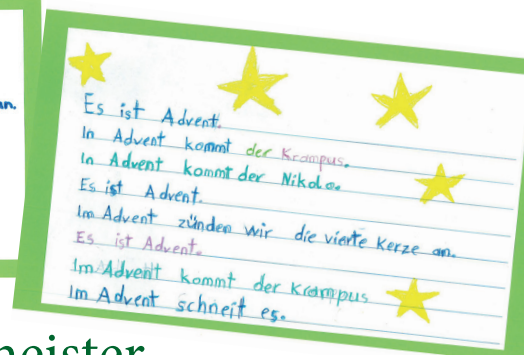 an.
Es ist Advent.
In Advent kommt der Krampus.
In Advent kommt der Nikolo.
Es ist Advent.
Im Advent zünden wir die vierte Kerze an.
Es ist Advent.
Im Advent kommt der Krampus
Im Advent schneit es.
meister